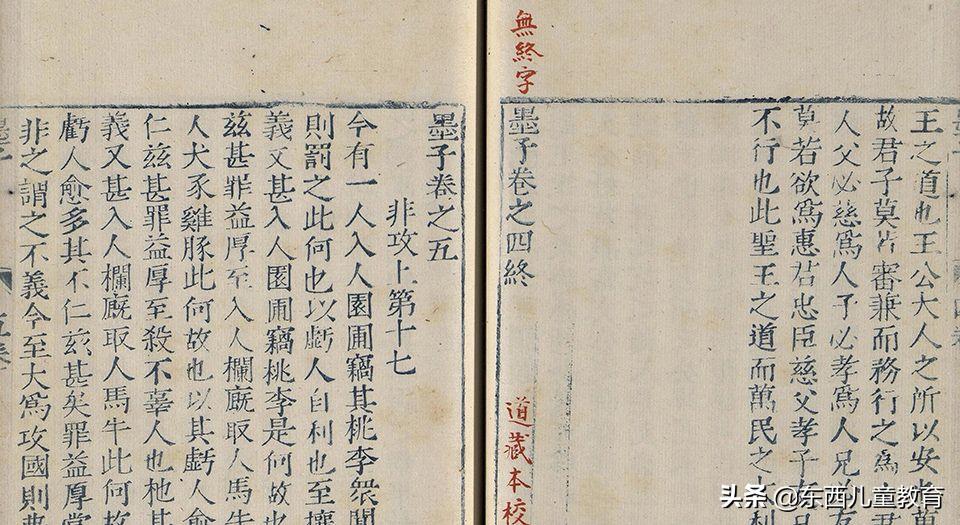 王之道也王公大人之所以安也萬
故君子莫若審兼而務行之為人君
人父必慈為人子必孝為人兄必友
莫若欲為惠君忠臣慈父孝子友兄
不行也此聖王之道而萬民之大利
無終字
墨子卷之四終
道藏本校
墨子卷之五
非攻上第十七
今有一人入人園圃竊其桃李衆聞
則罰之此何也以虧人自利也至攘
義又甚入人園圃竊桃李是何故也
茲甚罪益厚至入人欄廄取人馬牛
人犬豕雞豚此何故也以其虧人愈
仁茲甚罪益厚至殺不辜人也扡
義又甚入人欄廄取人馬牛此何故
虧人愈多其不仁茲甚矣罪益厚當
非之謂之不義今至大為攻國則
头条 @东西儿童教育